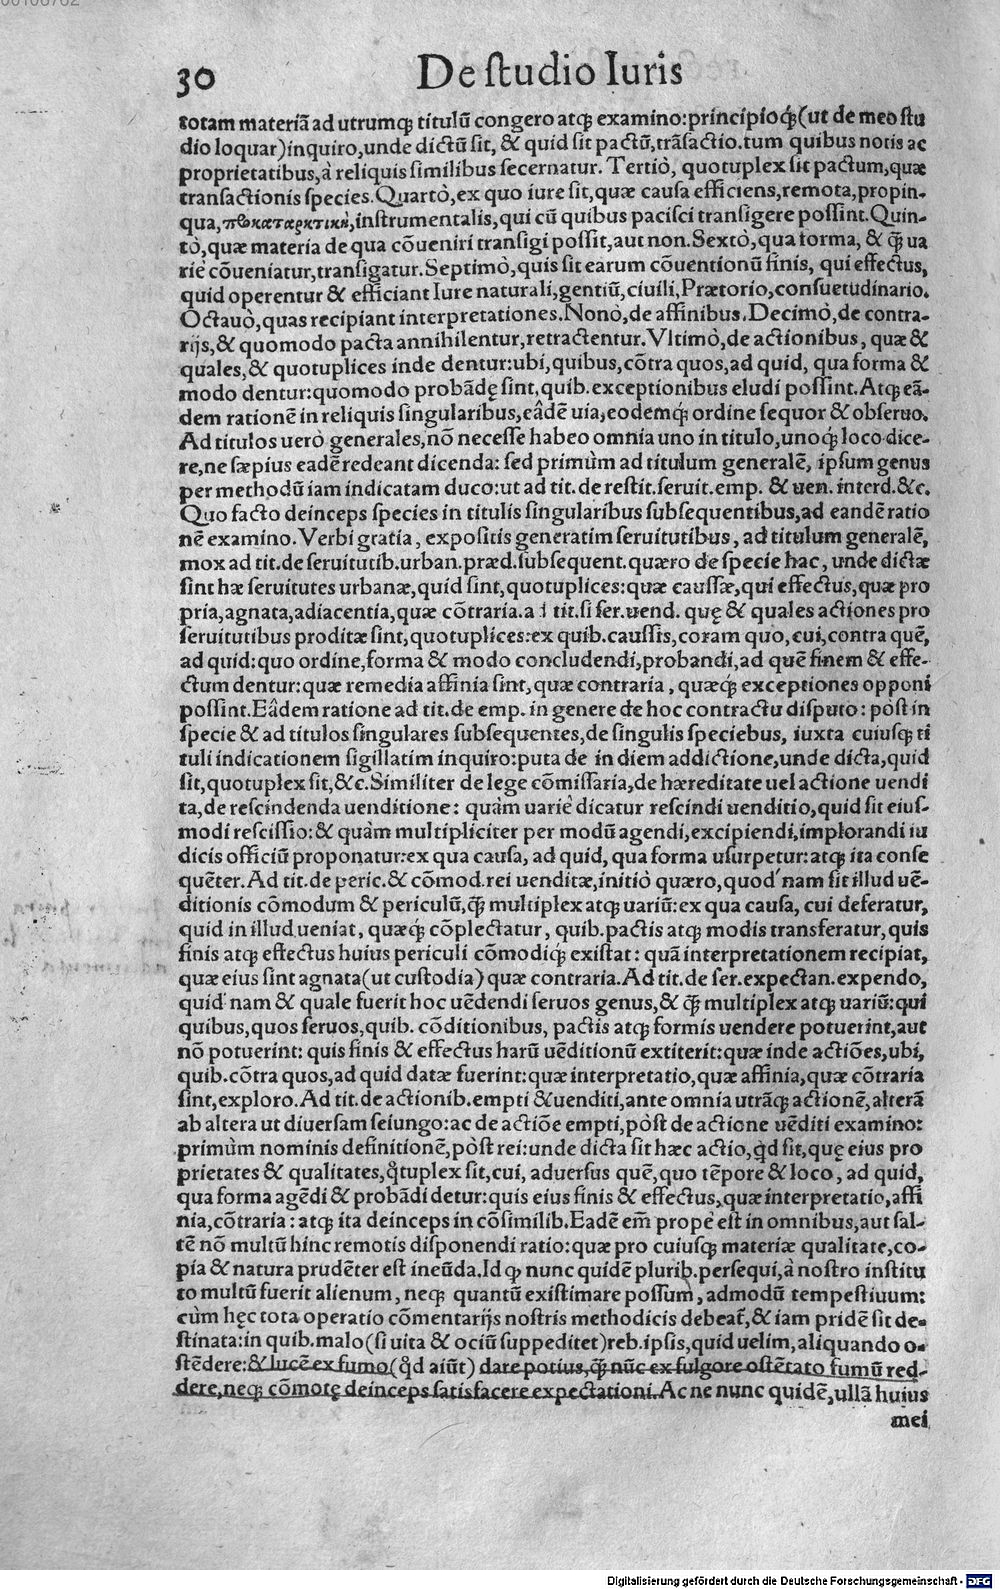 30 De studio Iuris
totam materiã ad utrumq; titulũ congero atq; examino: principioq́; (ut de meo stu
dio loquar) inquiro, unde dictũ sit, & quid sit pactũ, trãsactio. tum quibus notis ac
proprietatibus, à reliquis similibus secernatur. Tertiò, quotuplex sit pactum, quæ
transactionis species. Quartò, ex quo iure sit, quæ causa efficiens, remota, propin-
qua, προκαταρκτικὴ, instrumentalis, qui cũ quibus pacisci transigere possint. Quin-
tò, quæ materia de qua cõueniri transigi possit, aut non. Sextò, qua forma, & q̃ ua
riè cõueniatur, transigatur. Septimò, quis sit earum cõuentionũ finis, qui effectus,
quid operentur & efficiant Iure naturali, gentiũ, ciuili, Prætorio, consuetudinario.
Octauò, quas recipiant interpretationes. Nonò, de affinibus. Decimò, de contra-
rijs, & quomodo pacta annihilentur, retractentur. Vltimò, de actionibus, quæ &
quales, & quotuplices inde dentur: ubi, quibus, cõtra quos, ad quid, qua forma &
modo dentur: quomodo probãdę sint, quib. exceptionibus eludi possint. Atq; eã-
dem rationẽ in reliquis singularibus, eâdẽ uia, eodemq́; ordine sequor & obseruo.
Ad titulos uerò generales, nõ necesse habeo omnia uno in titulo, unoq́; loco dice-
re, ne sæpius eadẽ redeant dicenda: sed primùm ad titulum generalẽ, ipsum genus
per methodũ iam indicatam duco: ut ad tit. de restit. seruit. emp. & uen. interd. &c.
Quo facto deinceps species in titulis singularibus subsequentibus, ad eandẽ ratio
nẽ examino. Verbi gratia, expositis generatim seruitutibus, ad titulum generalẽ,
mox ad tit. de seruitutib. urban. præd. subsequent. quæro de specie hac, unde dictæ
sint hæ seruitutes urbanæ, quid sint, quotuplices: quæ caussæ, qui effectus, quæ pro
pria, agnata, adiacentia, quæ cõtraria. ad tit. si ser. uend. quę & quales actiones pro
seruitutibus proditæ sint, quotuplices: ex quib. caussis, coram quo, cui, contra quẽ,
ad quid: quo ordine, forma & modo concludendi, probandi, ad quẽ finem & effe-
ctum dentur: quæ remedia affinia sint, quæ contraria, quæq́; exceptiones opponi
possint. Eâdem ratione ad tit. de emp. in genere de hoc contractu disputo: pòst in
specie & ad titulos singulares subsequentes, de singulis speciebus, iuxta cuiusq; ti
tuli indicationem sigillatim inquiro: puta de in diem addictione, unde dicta, quid
sit, quotuplex sit, &c. Similiter de lege cõmissaria, de hæreditate uel actione uendi
ta, de rescindenda uenditione: quàm uariè dicatur rescindi uenditio, quid sit eius-
modi rescissio: & quàm multipliciter per modũ agendi, excipiendi, implorandi iu
dicis officiũ proponatur: ex qua causa, ad quid, qua forma usurpetur: atq; ita conse
quẽter. Ad tit. de peric. & cõmod. rei uenditæ, initiò quæro, quod'nam sit illud uẽ-
ditionis cõmodum & periculũ, q̃ multiplex atq; uariũ: ex qua causa, cui deferatur,
quid in illud ueniat, quæq́; cõplectatur, quib. pactis atq; modis transferatur, quis
finis atq; effectus huius periculi cõmodiq́; existat: quã interpretationem recipiat,
quæ eius sint agnata (ut custodia) quæ contraria. Ad tit. de ser. expectan. expendo,
quid'nam & quale fuerit hoc uẽdendi seruos genus, & q̃ multiplex atq; uariũ: qui
quibus, quos seruos, quib. cõditionibus, pactis atq; formis uendere potuerint, aut
nõ potuerint: quis finis & effectus harũ uẽditionũ extiterit: quæ inde actiões, ubi,
quib. cõtra quos, ad quid datæ fuerint: quæ interpretatio, quæ affinia, quæ cõtraria
sint, exploro. Ad tit. de actionib. empti & uenditi, ante omnia utrãq; actionẽ, alterã
ab altera ut diuersam seiungo: ac de actiõe empti, pòst de actione uẽditi examino:
primùm nominis definitionẽ, pòst rei: unde dicta sit hæc actio, qd sit, quę eius pro
prietates & qualitates, q̊tuplex sit, cui, aduersus quẽ, quo tẽpore & loco, ad quid,
qua forma agẽdi & probãdi detur: quis eius finis & effectus, quæ interpretatio, affi
nia, cõtraria: atq; ita deinceps in cõsimilib. Eadẽ em̃ propè est in omnibus, aut sal-
tẽ nõ multũ hinc remotis disponendi ratio: quæ pro cuiusq; materiæ qualitate, co-
pia & natura prudẽter est ineũda. Id qp nunc quidẽ plurib. persequi, à nostro institu
to multũ fuerit alienum, neq; quantũ existimare possum, admodũ tempestiuum:
cùm hęc tota operatio cõmentarijs nostris methodicis debeat̃, & iam pridẽ sit de-
stinata: in quib. malo (si uita & ociũ suppeditet) reb. ipsis, quid uelim, aliquando o-
stẽdere: & lucẽ ex fumo (q̊d aiũt) dare potius, q̃ nũc ex fulgore ostẽtato fumũ red-
dere, neq; cõmotę deinceps satisfacere expectationi. Ac ne nunc quidẽ, ullã huius
mei
Digitalisierung gefördert durch die Deutsche Forschungsgemeinschaft - DFG